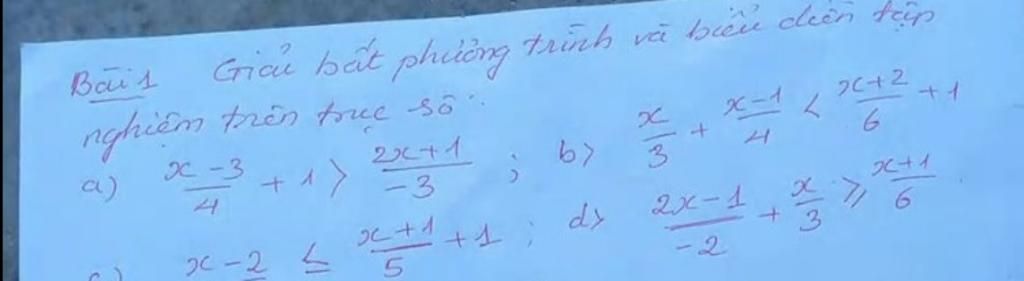 Bài 1 Giải bất phương trình và biểu diễn tập
nghiệm trên trục số:
a) \frac{x-3}{4} + 1 > \frac{2x+1}{-3} ; b) \frac{x}{3} + \frac{x-1}{4} < \frac{x+2}{6} + 1
x-2 ≤ \frac{x+1}{5} + 1 ; d) \frac{2x-1}{-2} + \frac{x}{3} ≥ \frac{x+1}{6}